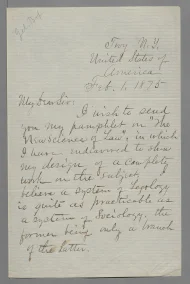 Troy N.Y.
United States of
America
Feb. 1, 1875
My Dear Sir:
I wish to send
you my pamphlet on "The
New Science of Law", in which
I have endeavored to show
my design of a complete
work on the subject. I
believe a system of Legology
is quite as practicable as
a system of Sociology, the
former being only a branch
of the latter.